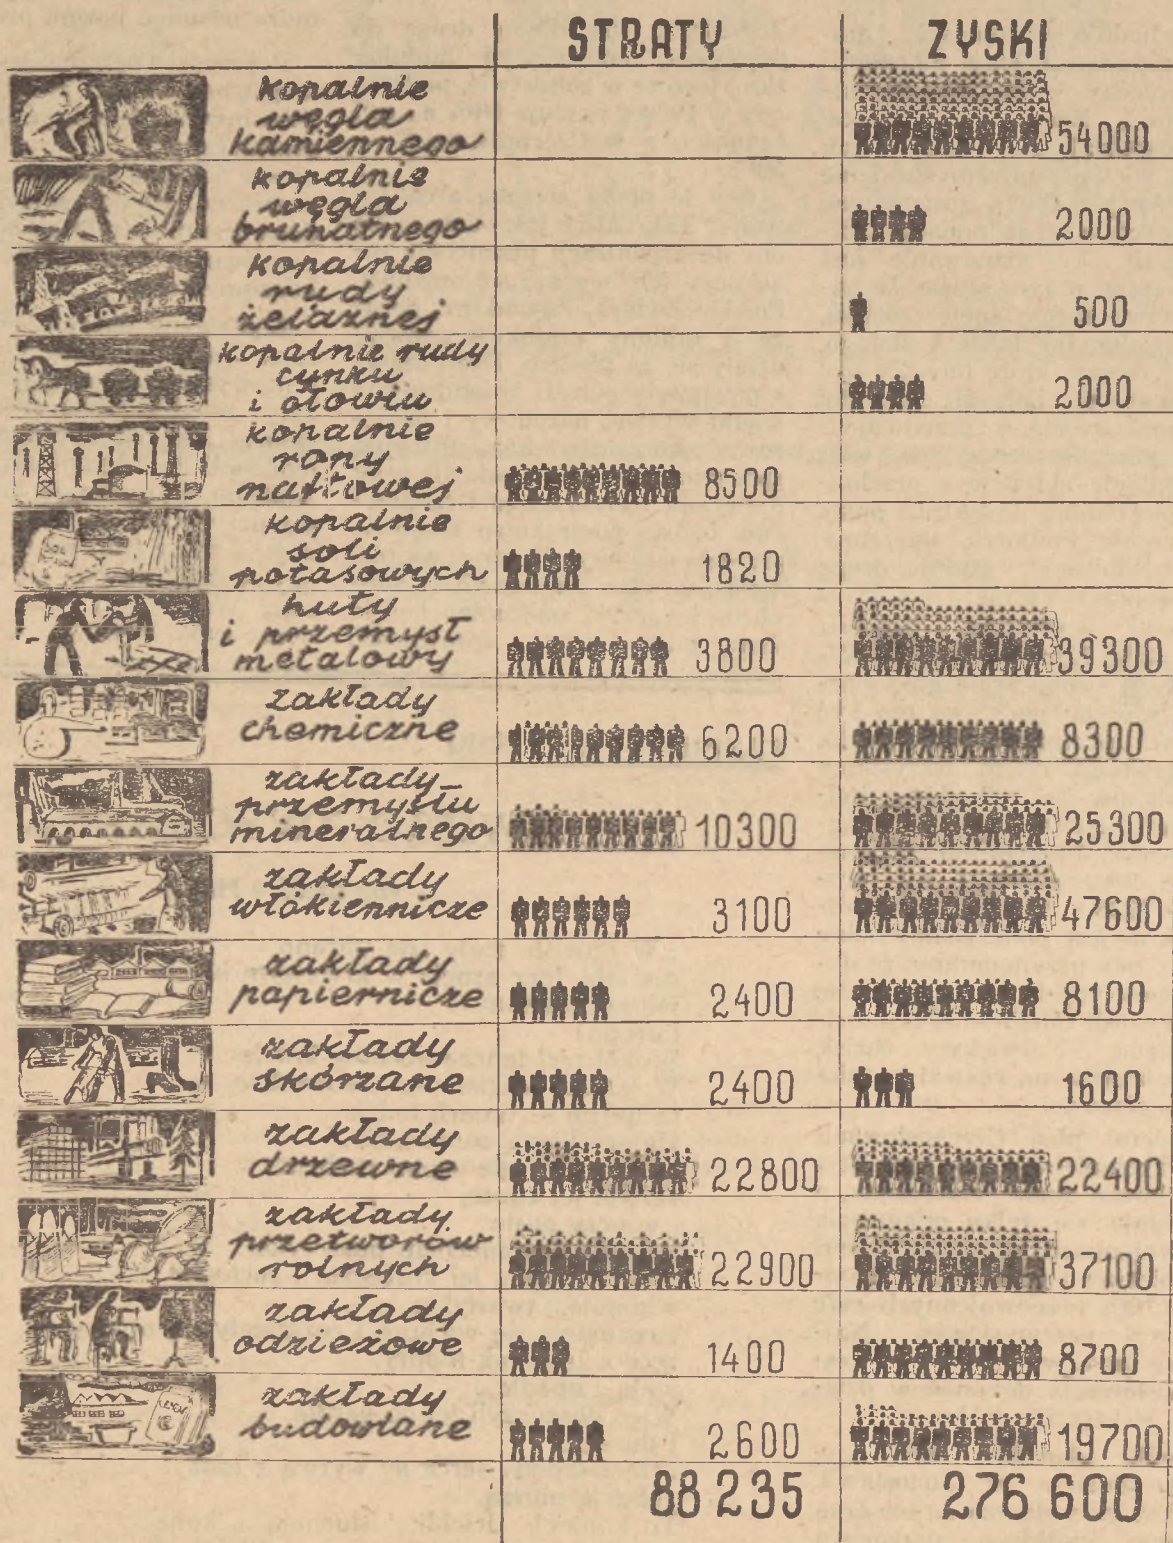 STRATY ZYSKI
kopalnie
węgla
kamiennego 54000
kopalnie
węgla
brunatnego 2000
kopalnie
rudy
żelaznej 500
kopalnie rudy
cynku
i ołowiu 2000
kopalnie
ropy
naftowej 8500
kopalnie
soli
potasowych 1820
huty
i przemysł
metalowy 3800 39300
zakłady
chemiczne 6200 8300
zakłady
przemysłu
mineralnego 10300 25300
zakłady
włókiennicze 3100 47600
zakłady
papiernicze 2400 8100
zakłady
skórzane 2400 1600
zakłady
drzewne 22800 22400
zakłady
przetworów
rolnych 22900 37100
zakłady
odzieżowe 1400 8700
zakłady
budowlane 2600 19700
88 235 276 600